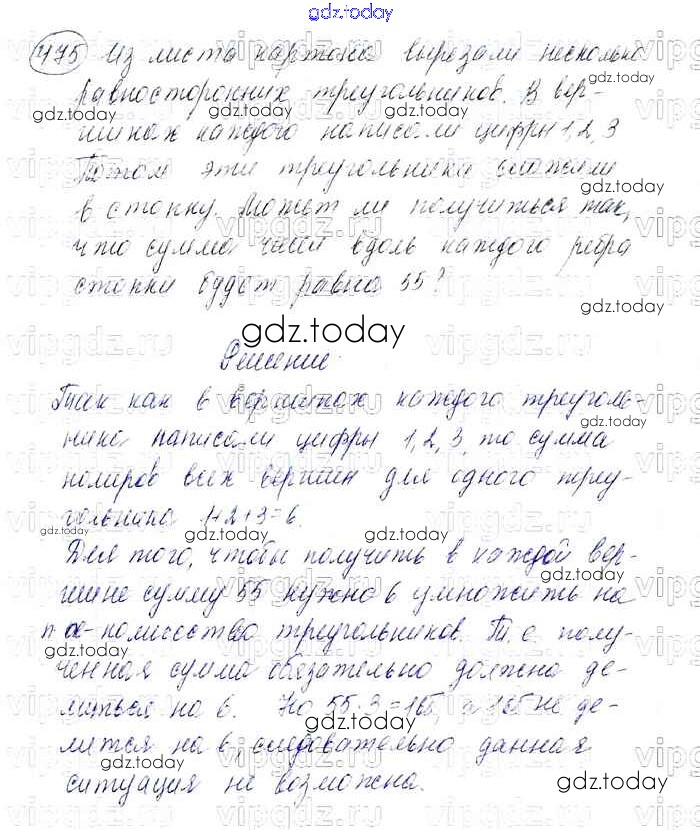 gdz.today
475 Из листа картона вырезали несколько
равносторонних треугольников. В вер-
шинах каждого написали цифры 1, 2, 3
Потом эти треугольники сложили
в стопку. Может ли получиться так,
что сумма чисел вдоль каждого ребра
стопки будет равна 55?
gdz.today
Решение.
Так как в вершинах каждого треуголь-
ника написали цифры 1, 2, 3, то сумма
номеров всех вершин для одного треу-
гольника 1+2+3=6.
Для того, чтобы получить в каждой вер-
шине сумму 55 нужно 6 умножить на
n - количество треугольников. Т. е. полу-
ченная сумма обязательно должна де-
литься на 6. Но 55·3=165, а 165 не де-
лится на 6, следовательно данная
ситуация не возможна.